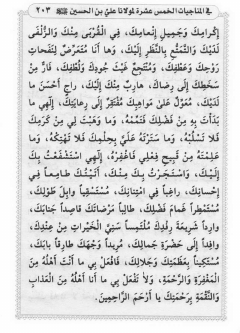 في المناجيات الخمس عشرة لمولانا علي بن الحسين ٢٠٣
إِكْرَامِكَ وَجَمِيلِ إِنْعَامِكَ، فِي الْقُرْبَى مِنْكَ وَالزُّلْفَى
لَدَيْكَ وَالتَّمَتُّعِ بِالنَّظَرِ إِلَيْكَ، وَهَا أَنَا مُتَعَرِّضٌ لِنَفَحَاتِ
رَوْحِكَ وَعَطْفِكَ، وَمُنْتَجِعٌ غَيْثَ جُودِكَ وَلُطْفِكَ، فَارٌّ مِنْ
سَخَطِكَ إِلَى رِضَاكَ، هَارِبٌ مِنْكَ إِلَيْكَ، رَاجٍ أَحْسَنَ مَا
لَدَيْكَ، مُعَوِّلٌ عَلَى مَوَاهِبِكَ، مُفْتَقِرٌ إِلَى رِعَايَتِكَ، إِلَهِي مَا
بَدَأْتَ بِهِ مِنْ فَضْلِكَ فَتَمِّمْهُ، وَمَا وَهَبْتَ لِي مِنْ كَرَمِكَ
فَلَا تَسْلُبْهُ، وَمَا سَتَرْتَهُ عَلَيَّ بِحِلْمِكَ فَلَا تَهْتِكْهُ، وَمَا
عَلِمْتَهُ مِنْ قَبِيحِ فِعْلِي فَاغْفِرْهُ، إِلَهِي اسْتَشْفَعْتُ بِكَ
إِلَيْكَ، وَاسْتَجَرْتُ بِكَ مِنْكَ، أَتَيْتُكَ طَامِعاً فِي
إِحْسَانِكَ، رَاغِباً فِي امْتِنَانِكَ، مُسْتَسْقِياً وَابِلَ طَوْلِكَ،
مُسْتَمْطِراً غَمَامَ فَضْلِكَ، طَالِباً مَرْضَاتَكَ قَاصِداً جَنَابَكَ،
وَارِداً شَرِيعَةَ رِفْدِكَ مُلْتَمِساً سَنِيَّ الْخَيْرَاتِ مِنْ عِنْدِكَ،
وَافِداً إِلَى حَضْرَةِ جَمَالِكَ، مُرِيداً وَجْهَكَ طَارِقاً بَابَكَ،
مُسْتَكِيناً بِعَظَمَتِكَ وَجَلَالِكَ، فَافْعَلْ بِي مَا أَنْتَ أَهْلُهُ مِنَ
الْمَغْفِرَةِ وَالرَّحْمَةِ، وَلَا تَفْعَلْ بِي مَا أَنَا أَهْلُهُ مِنَ الْعَذَابِ
وَالنِّقْمَةِ بِرَحْمَتِكَ يَا أَرْحَمَ الرَّاحِمِينَ.